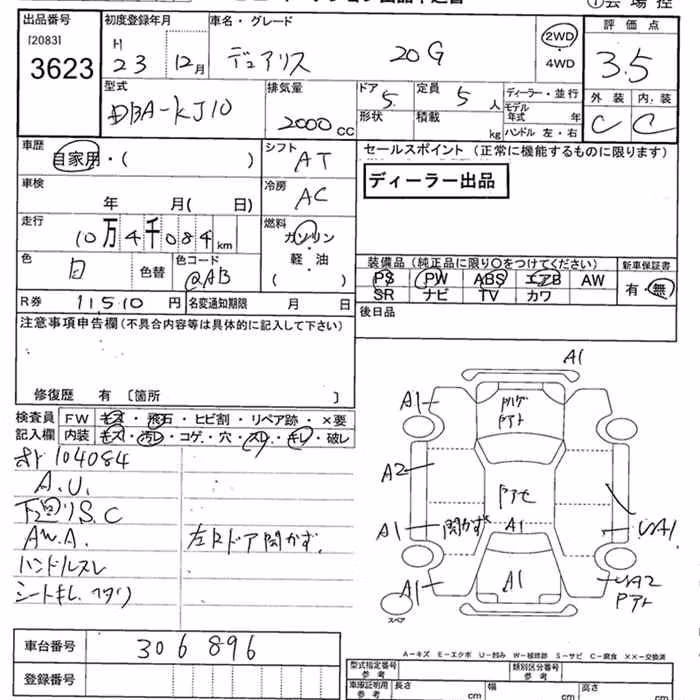 出品番号 初度登録年月 車名・グレード 評価点
[2083] H
3623 23 12月 デュアリス 20G 2WD・4WD 3.5
型式 排気量 ドア 定員 ディーラー・並行 外装 内装
DBA-KJ10 2000cc 5 5人 モデル年式 年 C C
形状 積載 kg ハンドル 左・右
車歴 シフト セールスポイント (正常に機能するものに限ります)
自家用・( ) AT ディーラー出品
車検 冷房
年 月( 日) AC
走行 燃料
10万4千084km ガソリン・軽・油
( )
色 色替 色コード 装備品 (純正品に限り○をつけてください) 新車保証書
白 QAB PS PW ABS エアB AW 有・無
SR ナビ TV カワ
R券 11510円 名変通知期限 月 日 後日品
注意事項申告欄 (不具合内容等は具体的に記入して下さい)
修復歴 有 〔箇所 〕
検査員 FW キズ・飛石・ヒビ割・リペア跡・×要
記入欄 内装 キズ・汚レ・コゲ・穴・スレ・キレ・破レ
104084
A.U.
下回りS.C
AW.A. 左Rドア開かず.
ハンドルスレ
シートキレ
A1
A1
A2
A1 開かず A1 UA1
A1 A1 UA2
スペア
A-キズ E-エクボ U-凹み W-補修跡 S-サビ C-腐食 ××-交換済
車台番号 306896
登録番号
型式指定番号 参考 類別区分番号 参考
車庫証明用 参考 長さ cm 幅 cm 高さ cm